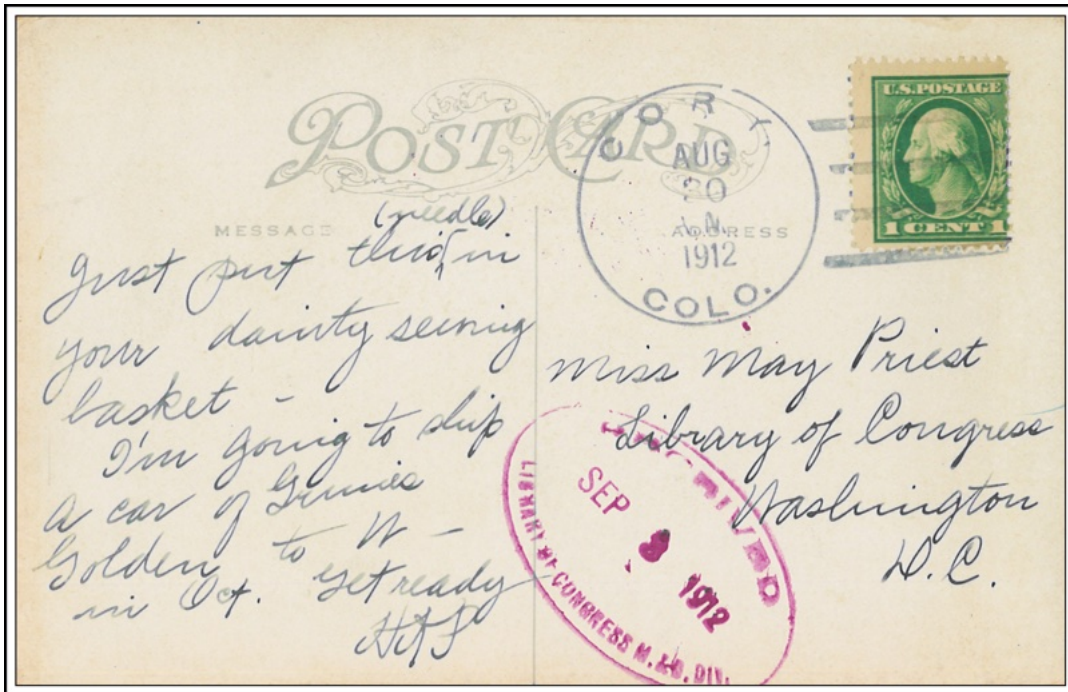 POST CARD
MESSAGE
ADDRESS
CORY
AUG
20
1912
COLO.
U.S. POSTAGE
1 CENT 1
(needle)
Just put this in
your dainty sewing
basket -
I'm going to ship
a car of Grimes
Golden to W -
in Oct. get ready
Miss May Priest
Library of Congress
Washington
D.C.
RECEIVED
SEP
1912
LIBRARY OF CONGRESS M. & D. DIV.